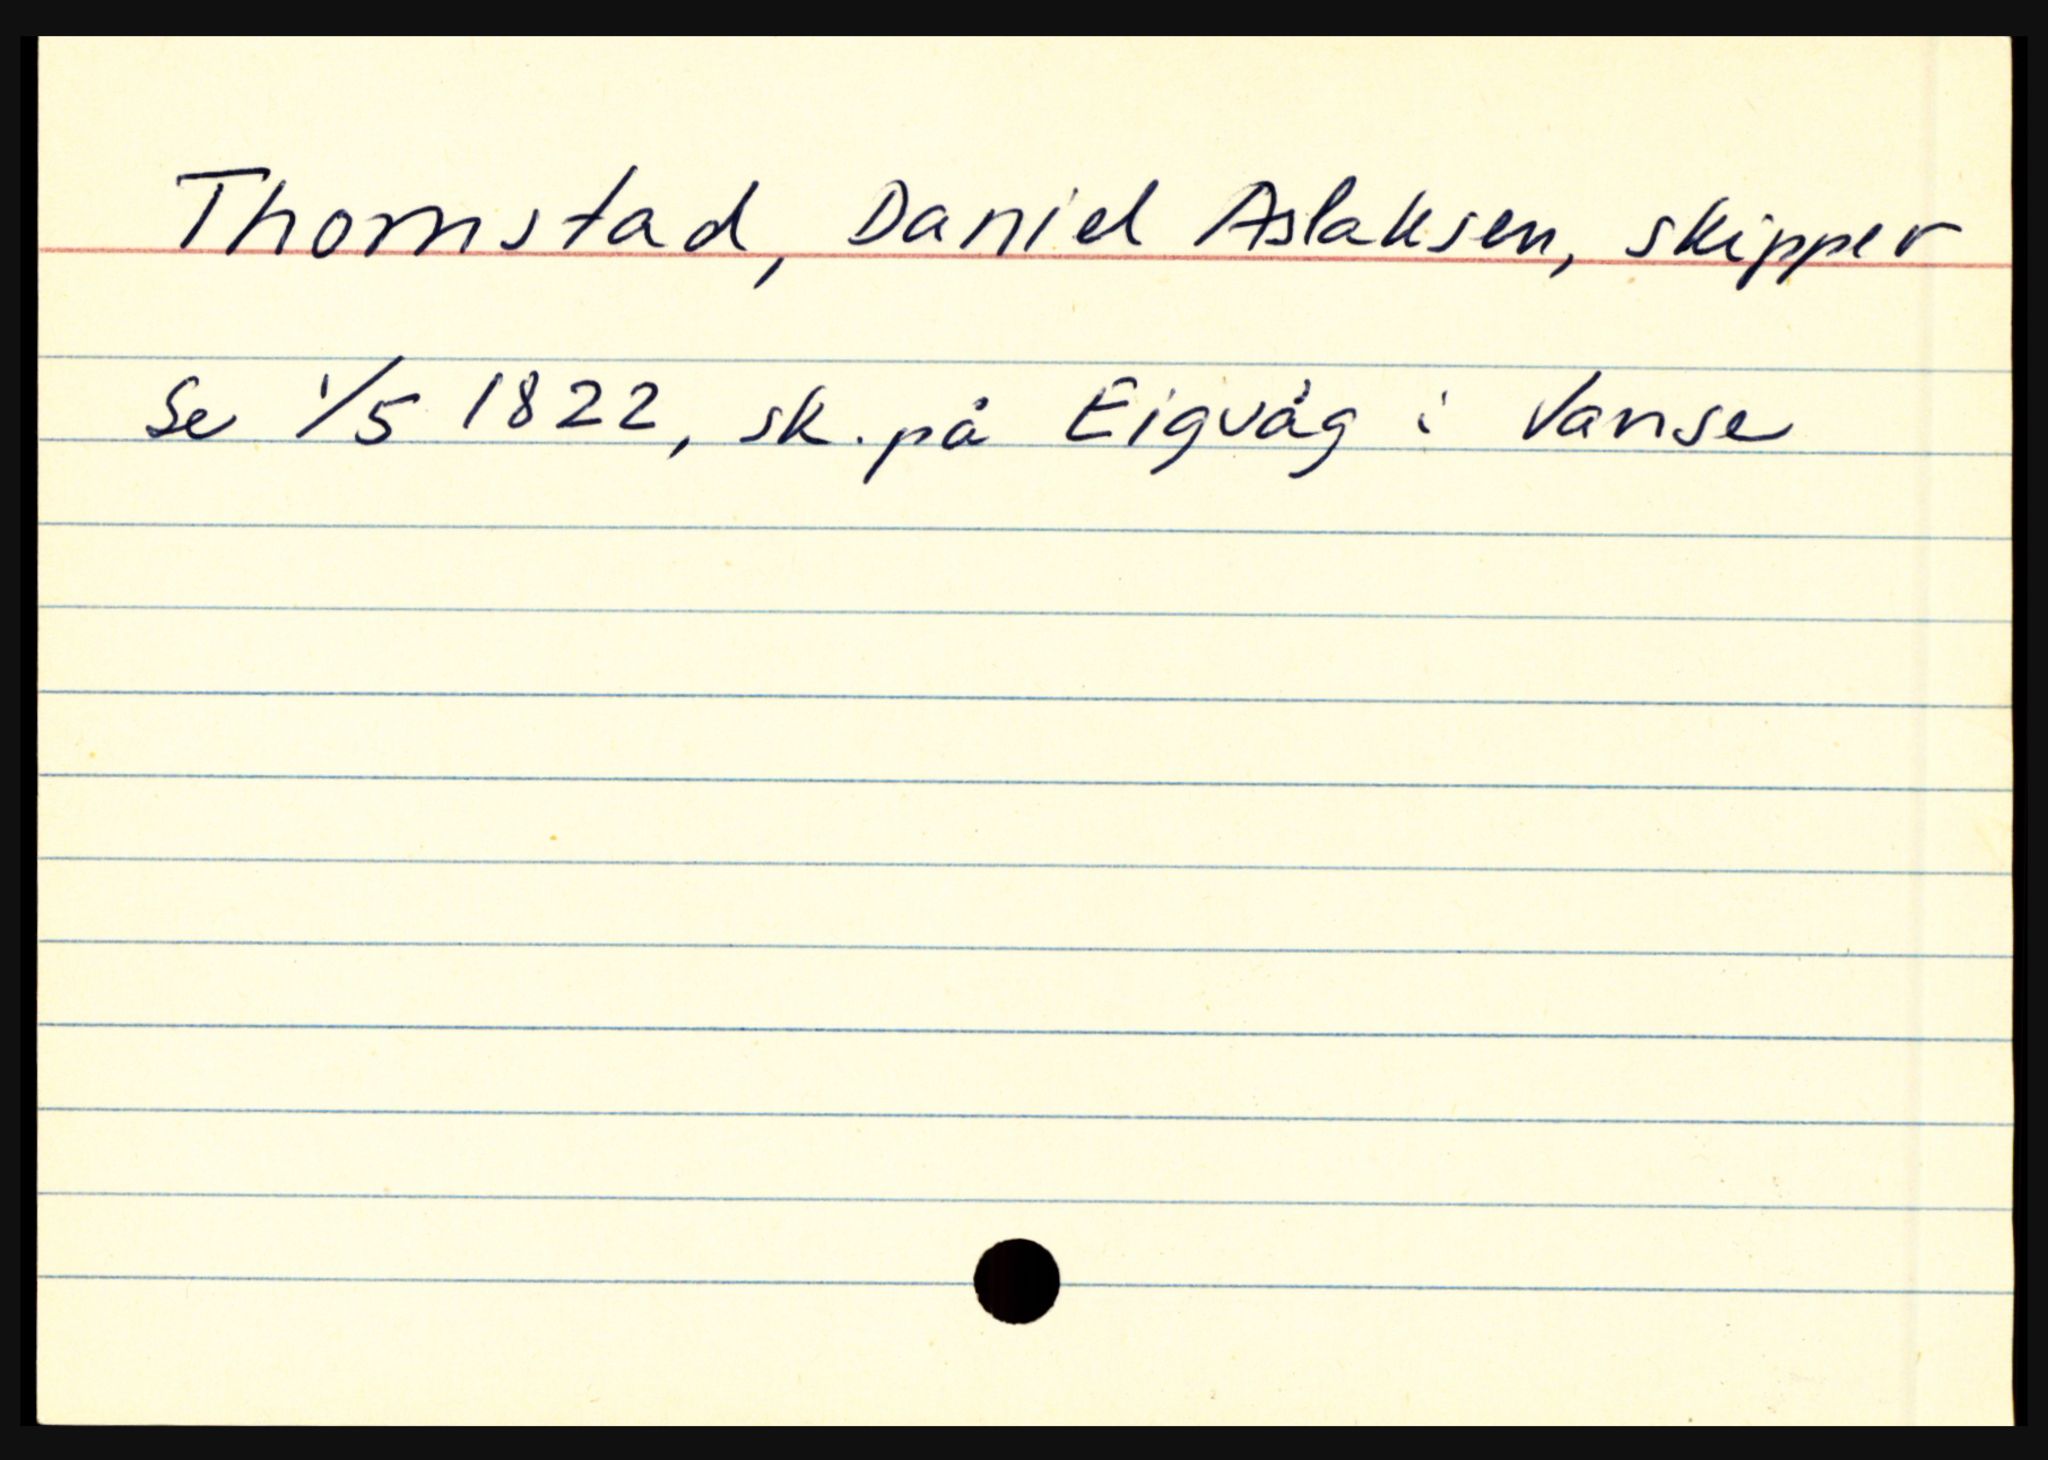 Thomstad, Daniel Aslaksen, skipper
Se 1/5 1822, sk. på Eigvåg i Vanse